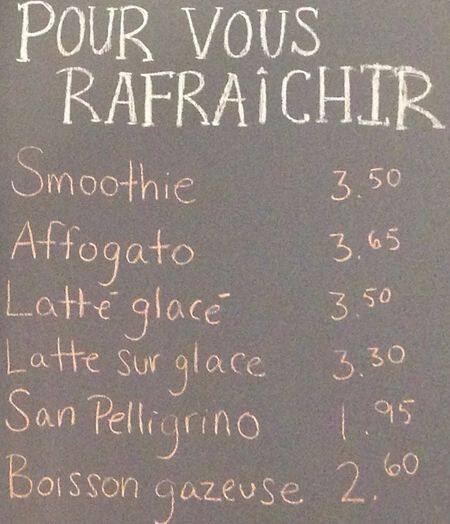 POUR VOUS
RAFRAîCHIR
Smoothie 3.50
Affogato 3.65
Latté glacé 3.50
Latte sur glace 3.30
San Pelligrino 1.95
Boisson gazeuse 2.60